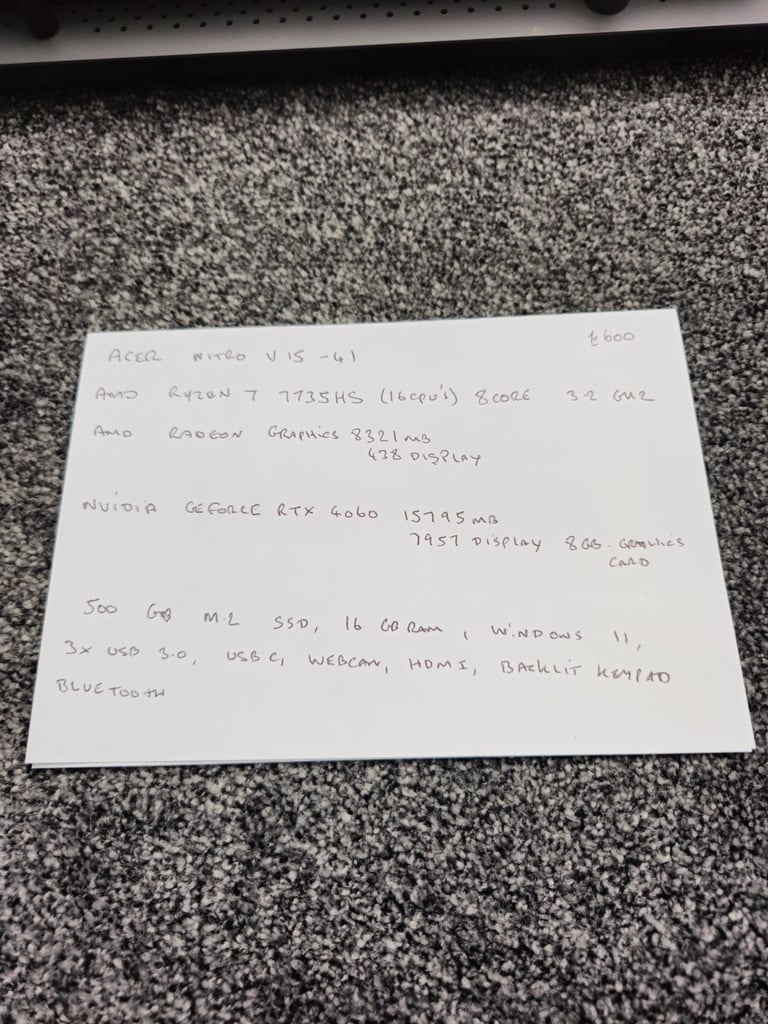 £600
ACER NITRO V 15 -41
AMD RYZEN 7 7735HS (16CPU'S) 8 CORE 3.2 GHZ
AMD RADEON GRAPHICS 8321MB
438 DISPLAY
NVIDIA GEFORCE RTX 4060 15795 MB
7957 DISPLAY 8GB. GRAPHICS
CARD
500 GB M.2 SSD, 16 GB RAM, WINDOWS 11,
3x USB 3.0, USB C, WEBCAM, HDMI, BACKLIT KEYPAD
BLUETOOTH